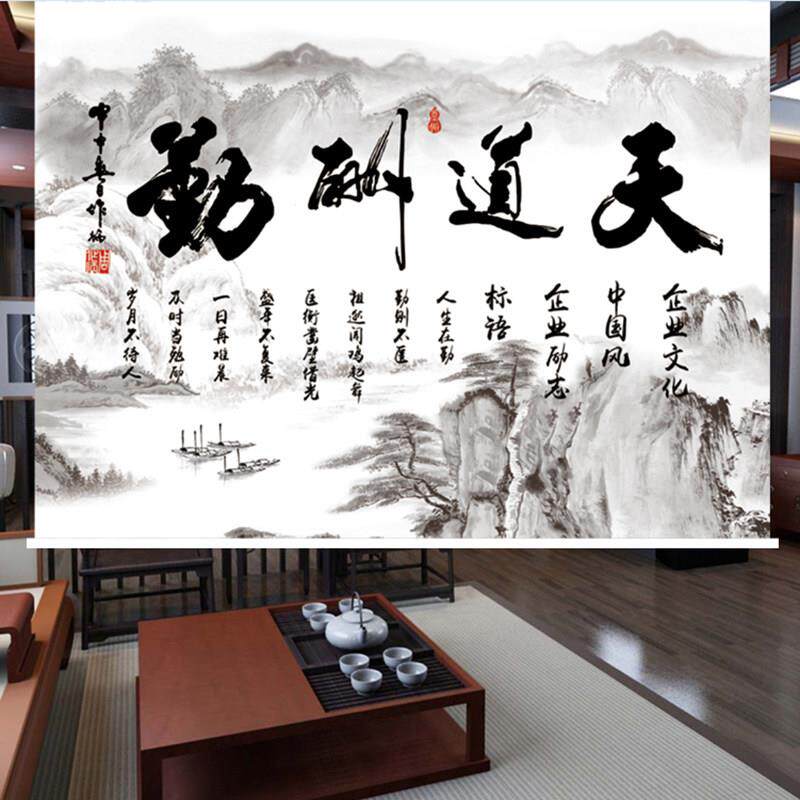 天道酬勤
企业文化
中国风
企业励志
标语
人生在勤
勤则不匮
祖逖闻鸡起舞
匡衡凿壁借光
盛年不复来
一日再难晨
及时当勉励
岁月不待人